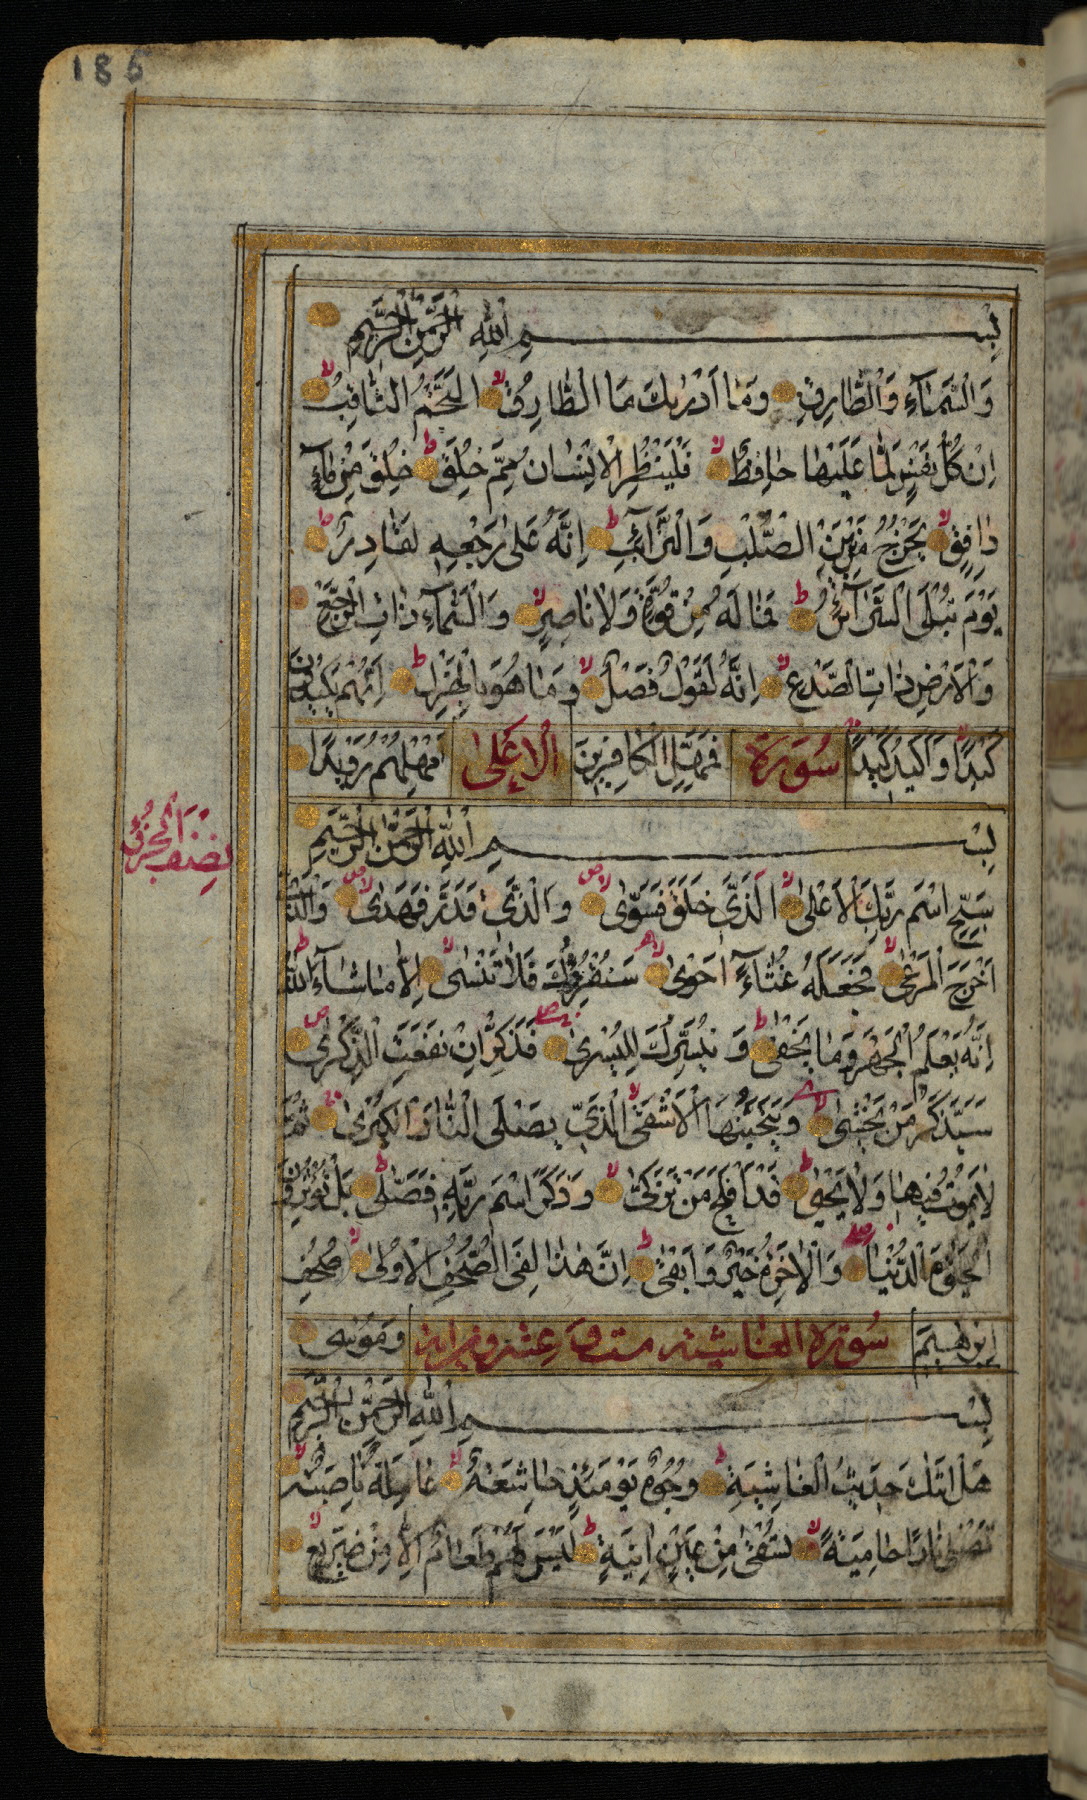 185
بِسْمِ اللّٰهِ الرَّحْمٰنِ الرَّحِيمِ
وَالسَّمَآءِ وَالطَّارِقِ وَمَا اَدْرٰيكَ مَا الطَّارِقُ النَّجْمُ الثَّاقِبُ
اِنْ كُلُّ نَفْسٍ لَمَّا عَلَيْهَا حَافِظٌ فَلْيَنْظُرِ الْاِنْسَانُ مِمَّ خُلِقَ خُلِقَ مِنْ مَآءٍ
دَافِقٍ يَخْرُجُ مِنْ بَيْنِ الصُّلْبِ وَالتَّرَآئِبِ اِنَّهُ عَلٰى رَجْعِهِ لَقَادِرٌ
يَوْمَ تُبْلَى السَّرَآئِرُ فَمَا لَهُ مِنْ قُوَّةٍ وَلَا نَاصِرٍ وَالسَّمَآءِ ذَاتِ الرَّجْعِ
وَالْاَرْضِ ذَاتِ الصَّدْعِ اِنَّهُ لَقَوْلٌ فَصْلٌ وَمَا هُوَ بِالْهَزْلِ اِنَّهُمْ يَكِيدُونَ
كَيْدًا وَاَكِيدُ كَيْدًا سُورَةُ فَمَهِّلِ الْكَافِرِينَ الْاَعْلٰى اَمْهِلْهُمْ رُوَيْدًا
بِسْمِ اللّٰهِ الرَّحْمٰنِ الرَّحِيمِ
نِصْفُ الْجُزْءِ
سَبِّحِ اسْمَ رَبِّكَ الْاَعْلٰى الَّذِى خَلَقَ فَسَوّٰى وَالَّذِى قَدَّرَ فَهَدٰى وَالَّذِى
اَخْرَجَ الْمَرْعٰى فَجَعَلَهُ غُثَآءً اَحْوٰى سَنُقْرِئُكَ فَلَا تَنْسٰى اِلَّا مَا شَآءَ اللّٰهُ
اِنَّهُ يَعْلَمُ الْجَهْرَ وَمَا يَخْفٰى وَنُيَسِّرُكَ لِلْيُسْرٰى فَذَكِّرْ اِنْ نَفَعَتِ الذِّكْرٰى
سَيَذَّكَّرُ مَنْ يَخْشٰى وَيَتَجَنَّبُهَا الْاَشْقَى الَّذِى يَصْلَى النَّارَ الْكُبْرٰى ثُمَّ
لَا يَمُوتُ فِيهَا وَلَا يَحْيٰى قَدْ اَفْلَحَ مَنْ تَزَكّٰى وَذَكَرَ اسْمَ رَبِّهِ فَصَلّٰى بَلْ تُؤْثِرُونَ
الْحَيٰوةَ الدُّنْيَا وَالْاٰخِرَةُ خَيْرٌ وَاَبْقٰى اِنَّ هٰذَا لَفِى الصُّحُفِ الْاُولٰى صُحُفِ
اِبْرٰهِيمَ سُورَةُ الْغَاشِيَةِ ست وعشرون اية وَمُوسٰى
بِسْمِ اللّٰهِ الرَّحْمٰنِ الرَّحِيمِ
هَلْ اَتٰيكَ حَدِيثُ الْغَاشِيَةِ وُجُوهٌ يَوْمَئِذٍ خَاشِعَةٌ عَامِلَةٌ نَاصِبَةٌ
تَصْلٰى نَارًا حَامِيَةً تُسْقٰى مِنْ عَيْنٍ اٰنِيَةٍ لَيْسَ لَهُمْ طَعَامٌ اِلَّا مِنْ ضَرِيعٍ